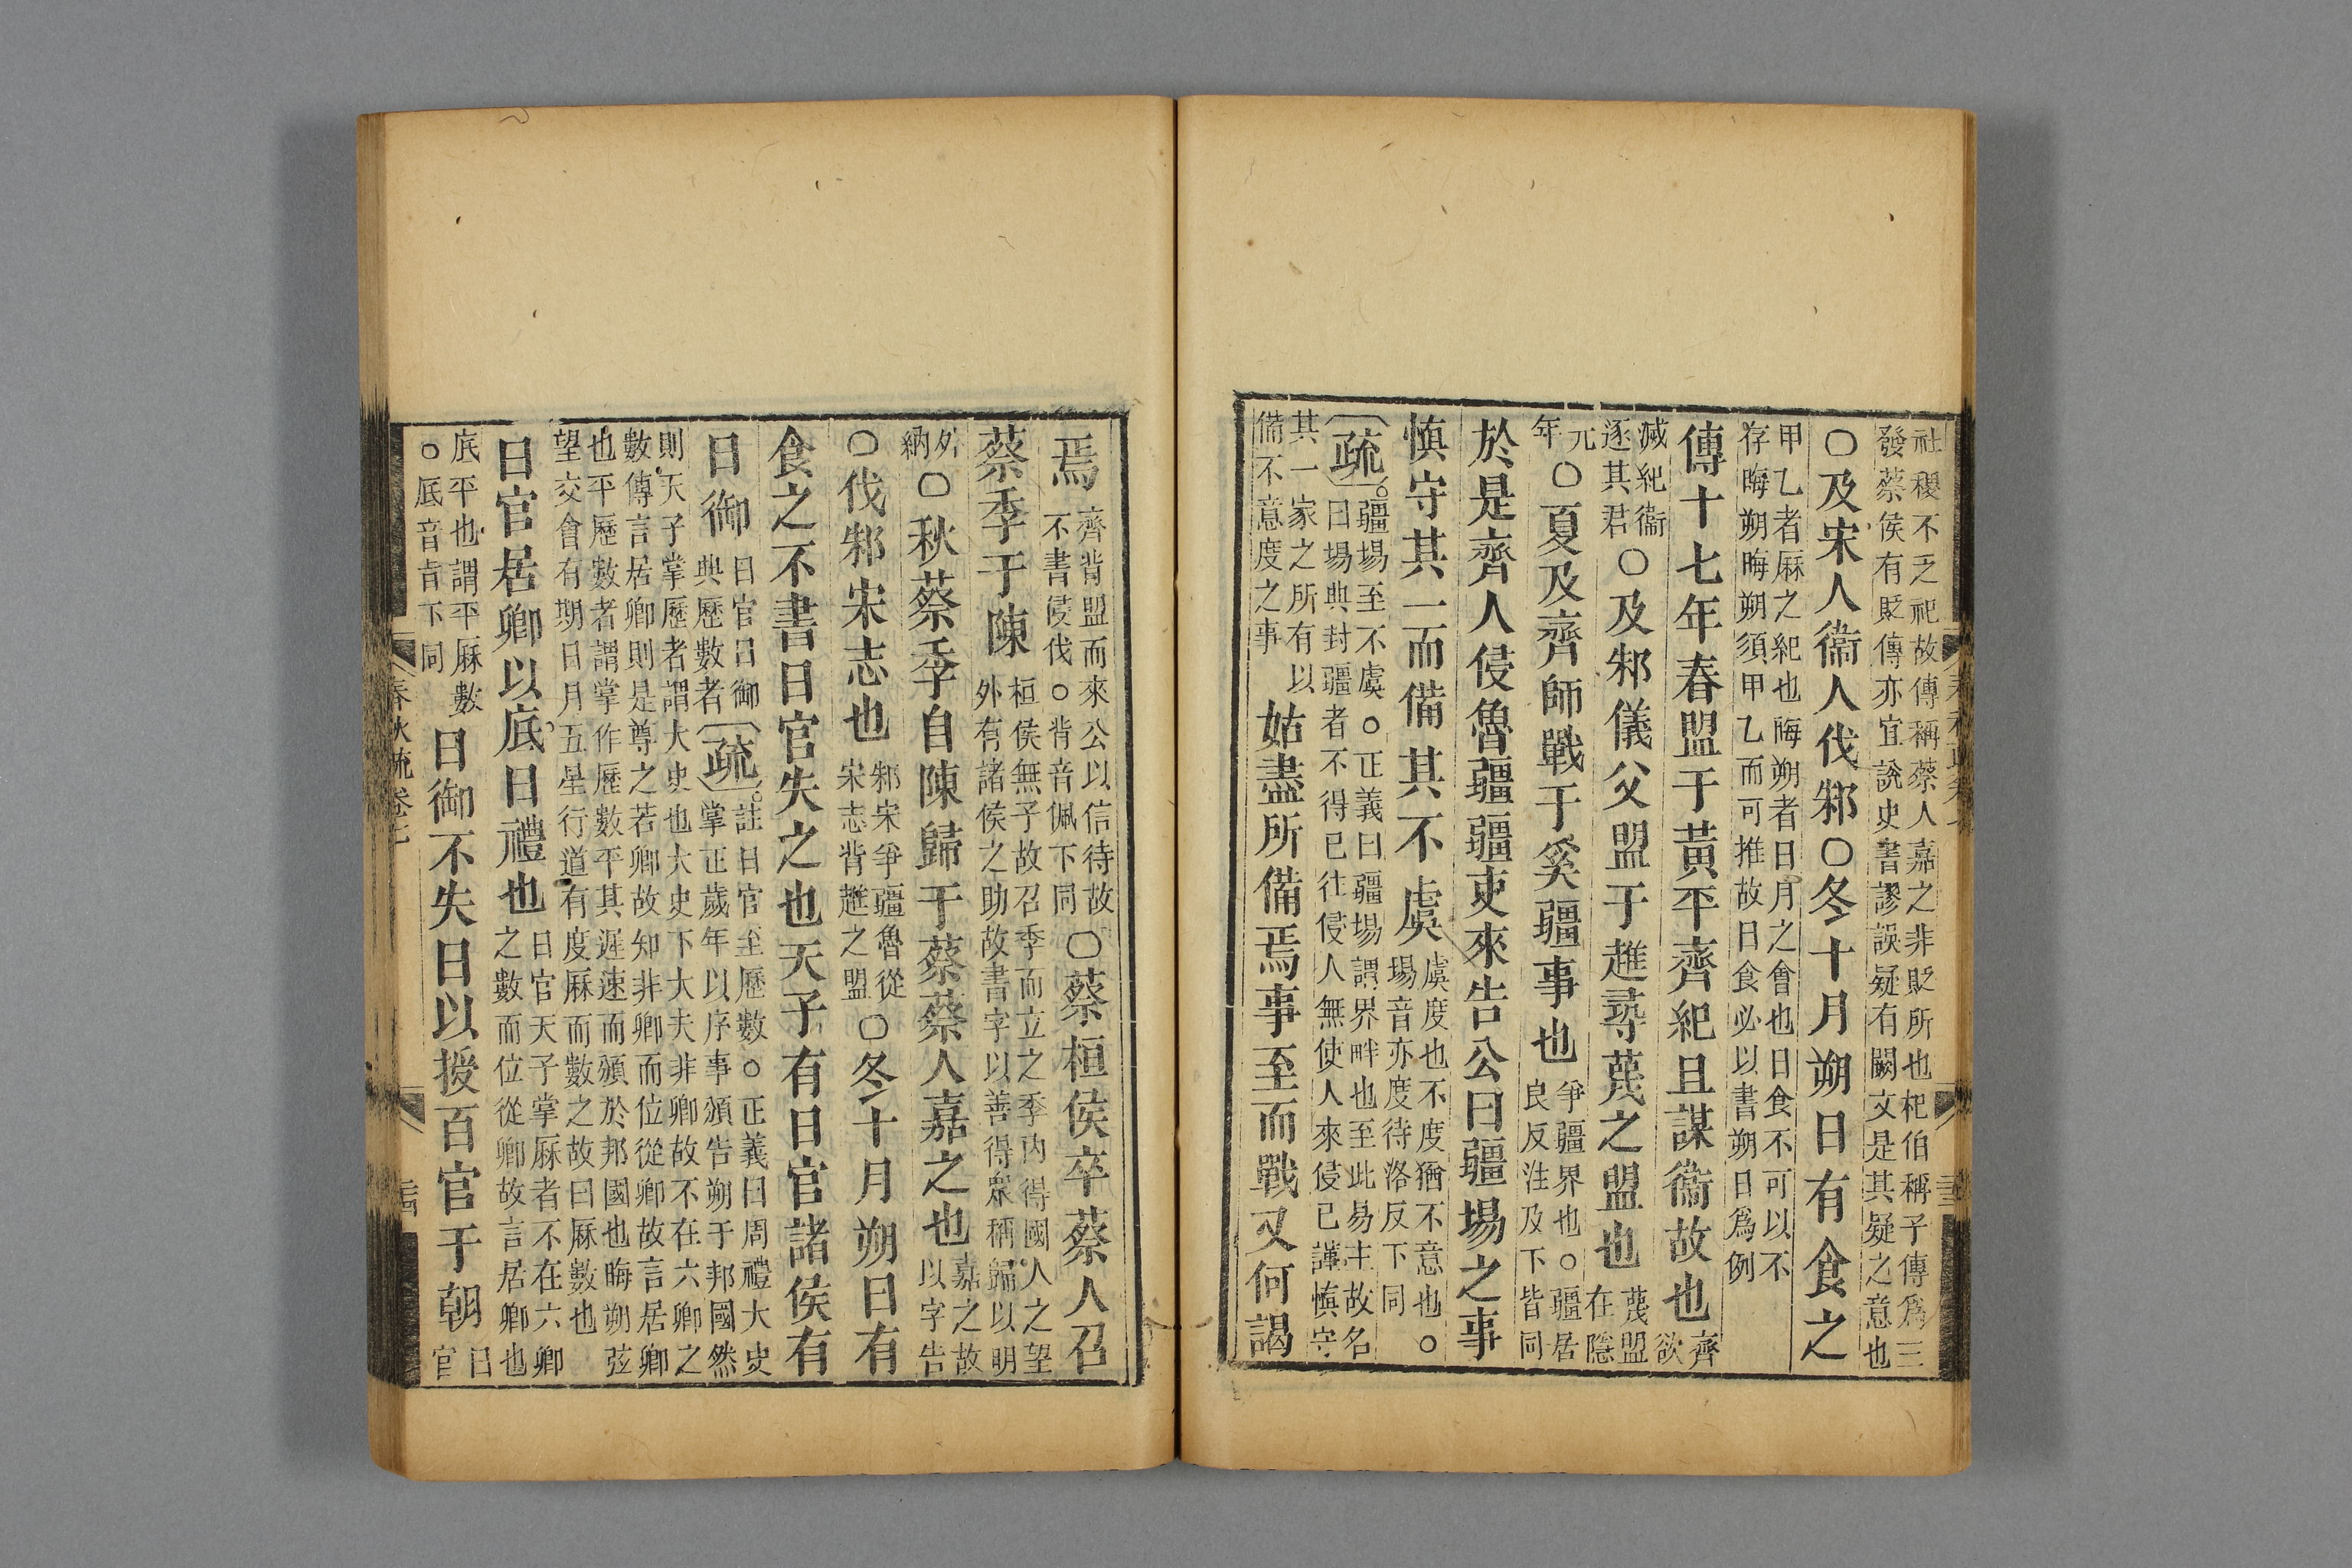 社稷不乏祀故傳稱蔡人嘉之非貶所也杞伯稱子傳爲三
發蔡侯有貶傳亦宜說史書謬誤疑有闕文是其疑之意也
○及宋人衞人伐邾○冬十月朔日有食之
甲乙者厤之紀也晦朔者日月之會也日食不可以不
存晦朔晦朔須甲乙而可推故日食必以書朔日爲例
傳十七年春盟于黃平齊紀且謀衞故也
齊
欲
滅紀衞
逐其君
○及邾儀父盟于趡尋蔑之盟也
蔑盟
在隱
元
年
○夏及齊師戰于奚疆事也
爭疆界也○疆居
良反注及下皆同
於是齊人侵魯疆疆吏來告公曰疆埸之事
愼守其一而備其不虞
虞度也不度猶不意也○
埸音亦度待洛反下同
疏
疆埸至不虞○正義曰疆埸謂界畔也至此易主故名
曰埸典封疆者不得已往侵人無使人來侵已謹愼守
其一家之所有以
備不意度之事
姑盡所備焉事至而戰又何謁
焉
齊背盟而來公以信待故
不書侵伐○背音佩下同
○蔡桓侯卒蔡人召
蔡季于陳
桓侯無子故召季而立之季内得國人之望
外有諸侯之助故書字以善得眾稱歸以明
外
納
○秋蔡季自陳歸于蔡蔡人嘉之也
嘉之故
以字告
○伐邾宋志也
邾宋爭疆魯從
宋志背趡之盟
○冬十月朔日有
食之不書日官失之也天子有日官諸侯有
日御
日官日御
典歷數者
疏
註日官至歷數○正義曰周禮大史
掌正歲年以序事頒告朔于邦國然
則天子掌歷者謂大史也大史下大夫非卿故不在六卿之
數傳言居卿則是尊之若卿故知非卿而位從卿故言居卿
也平歷數者謂掌作歷數平其遲速而頒於邦國也晦朔弦
望交會有期日月五星行道有度厤而數之故曰厤數也
日官居卿以底日禮也
日官天子掌厤者不在六卿
之數而位從卿故言居卿也
底平也謂平厤數
○底音旨下同
日御不失日以授百官于朝
日
官
春秋疏卷七